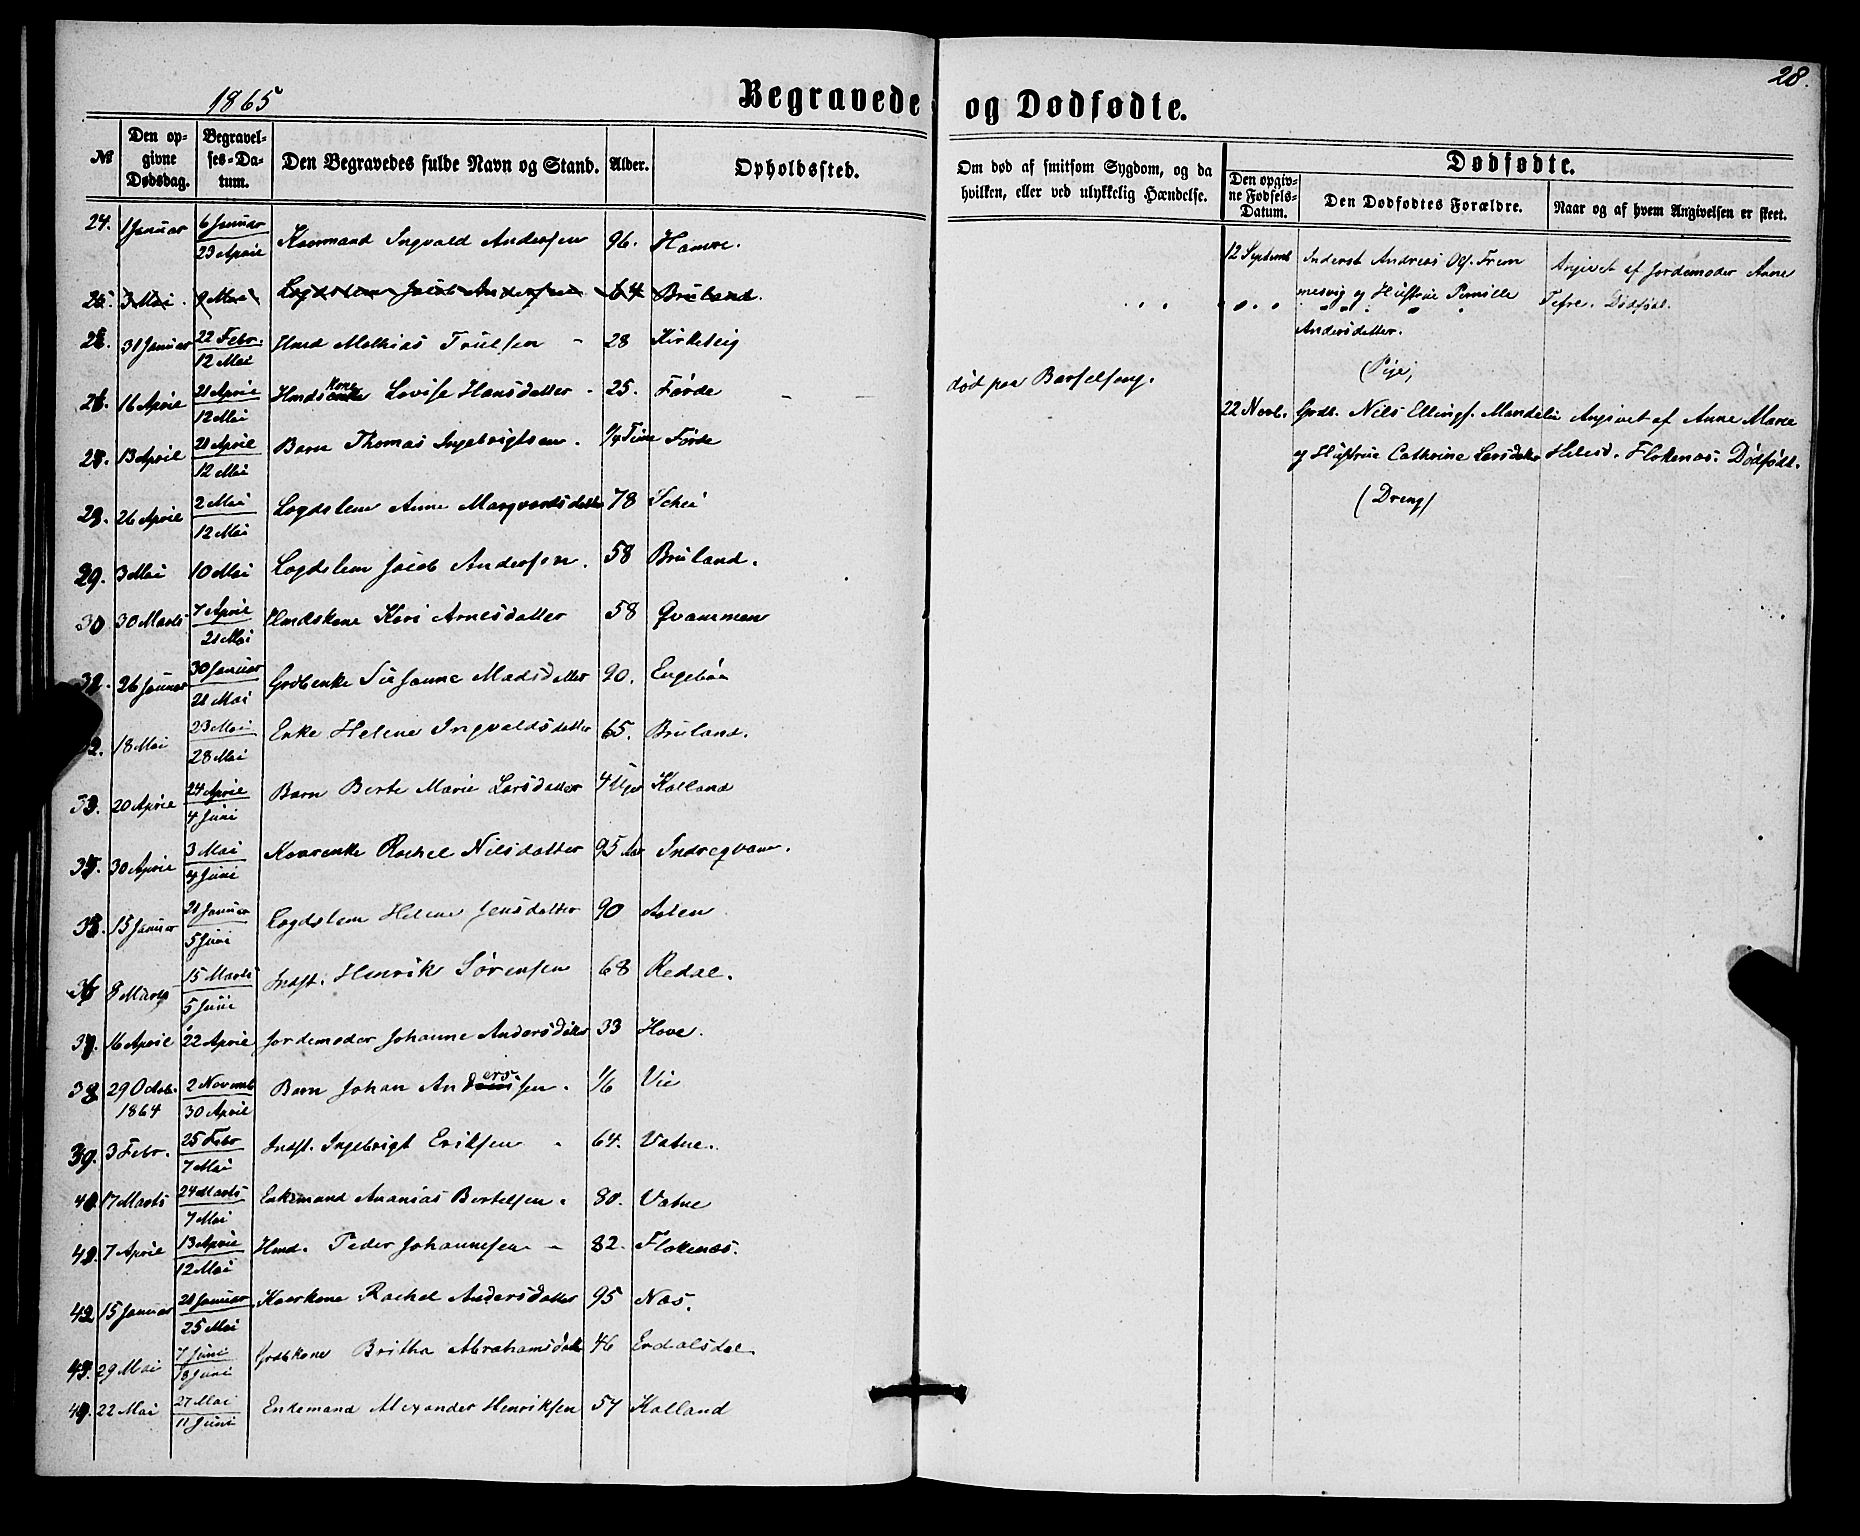 1865
Begravede og Dødfødte.
28.
№
Den opgivne Dødsdag.
Begravelses-Datum.
Den Begravedes fulde Navn og Stand.
Alder.
Opholdssted.
Om død af smitsom Sygdom, og da hvilken, eller ved ulykkelig Hændelse.
Dødfødte.
Den opgivne Fødsels-Datum.
Den Dødfødtes Forældre.
Naar og af hvem Angivelsen er skeet.
24. 1 Januar 6 Januar 23 April Kaarmand Ingvald Andersen 96. Hamre.
25. 3 Mai. 9 Mai Lægdslem Jacob Andersen 64 Bruland.
31 Januar 22 Febr. 12 Mai Hmd Mathias Trulsen - 28 Kirketeig
16 April 21 April 12 Mai Hmds Kone Lovise Hansdatter - 25. Førde død paa Barselseng.
13 April 21 April 12 Mai Barn Thomas Ingebrigtsen. 1/4 Time Førde
26 April 2 Mai 12 Mai Lægdslem Anne Marqvardsdatter 78 Schei
29. 3 Mai 10 Mai Lægdslem Jacob Andersen. 58 Bruland.
30 30 Marts 7 April 21 Mai Hmdskone Kari Arnesdatter 58 Qvammen
26 Januar 30 Januar 21 Mai Grdbenke Susanne Madsdatter 90. Engebøe
32. 18 Mai 23 Mai 28 Mai Enke Helene Ingvaldsdatter 65. Bruland.
33. 20 April 24 April 4 Juni Barn Berte Marie Larsdatter 4 Uger Kalland
30 April 3 Mai 4 Juni Kaarenke Rachel Nilsdatter 95 Aar Indreqvam.
15 Januar 21 Januar 5 Juni Lægdslem Helene Jensdatter 90 Asten
36 8 Marts 15 Marts 5 Juni Indst. Henrik Sørensen 68 Redal.
37. 16 April 22 April Jordemoder Johanne Andersdatter 33 Hove.
38 29 Octob. 1864 2 Novemb 30 April Barn Johan Andersen. 1/6 Vie
39. 3 Febr. 25 Febr 7 Mai Indst. Ingebrigt Eriksen - 64. Vatne.
40. 17 Marts 24 Marts 7 Mai Enkemand Ananias Bertelsen. 80. Vatne
7 April 13 April 12 Mai Hmd. Peder Johannesen - 82. Flokenæs.
42 15 Januar 21 Januar 25 Mai Kaarkone Rachel Andersdatter 95 Næs.
43. 29 Mai 7 Juni 18 Juni Grdbkone Britha Abrahamsdatter 46 Erdalsdal
22 Mai 27 Mai 11 Juni Enkemand Alexander Henriksen 57 Kalland
12 Septemb Inderst Andreas Ols. Frem
mesvig og Hustrue Pernille
Andersdatter.
(Pige)
Angivet af Jordemoder Anne
Tefre. Dødfød.
22 Novb. Grdb. Nils Ellings. Mandelin
og Hustrue Cathrine Larsdatter
(Dreng)
Angivet af Anne Marie
Flokenæs. Dødfødt.